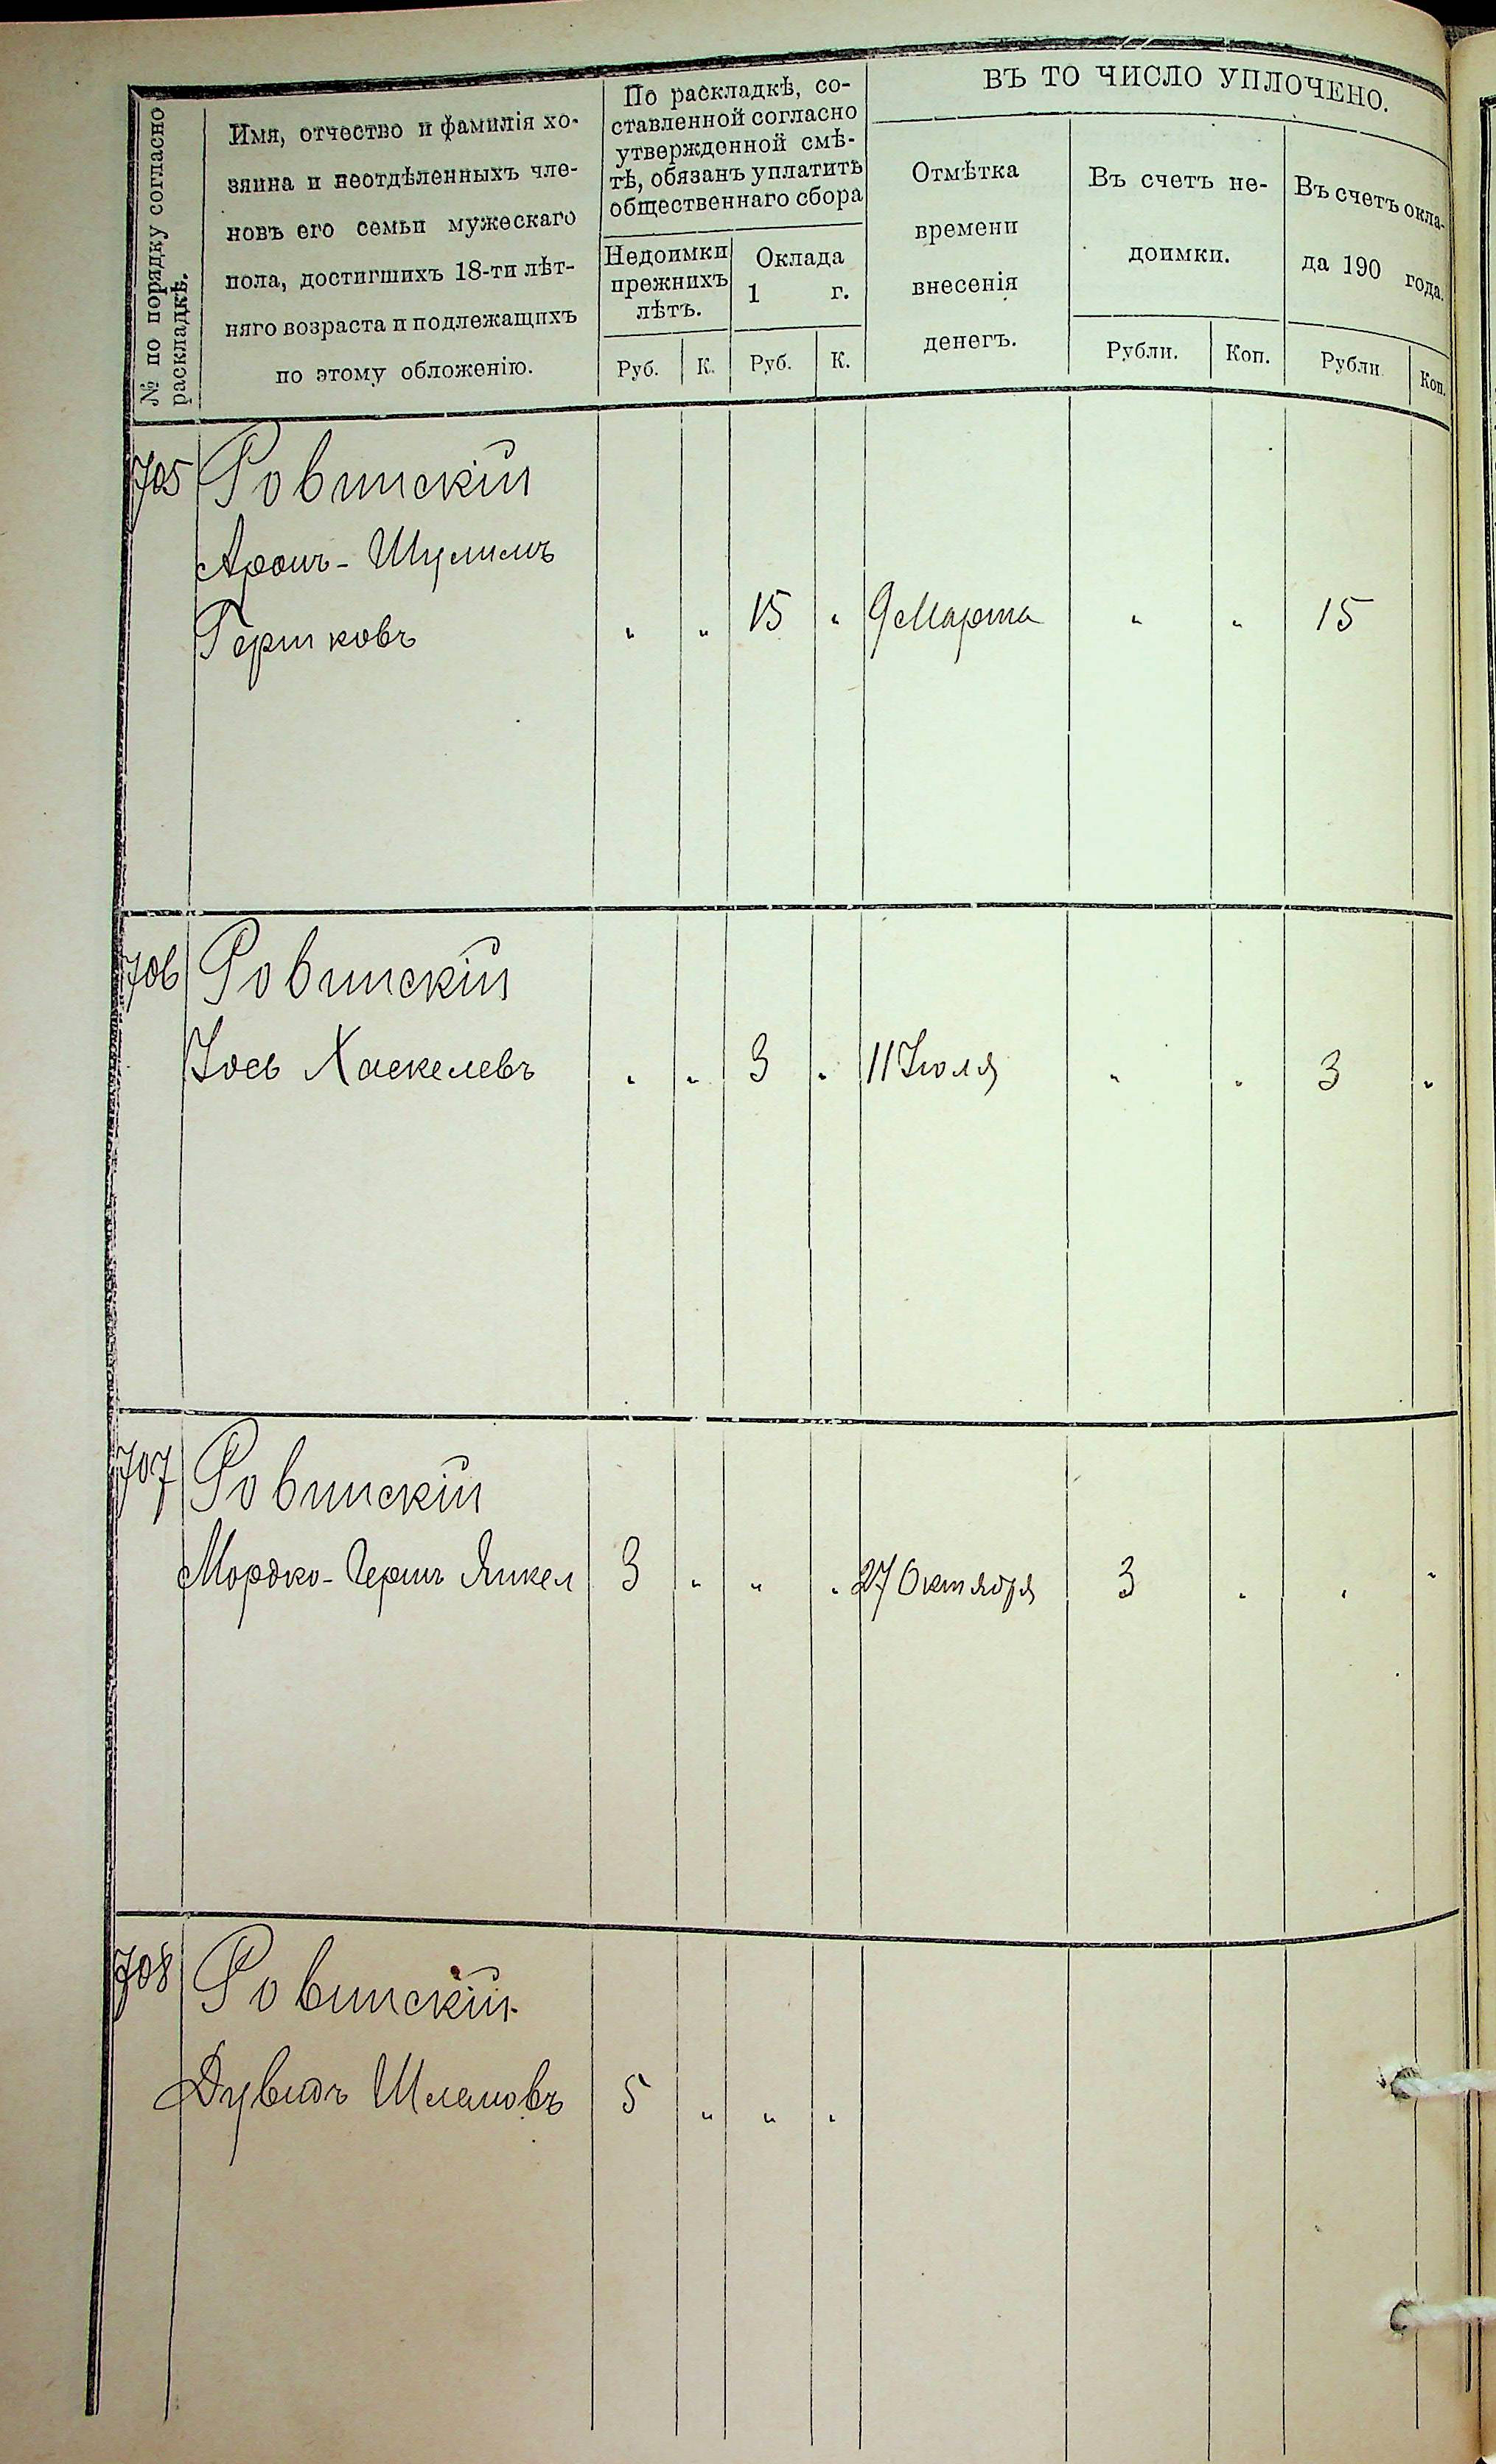 № по порядку согласно
раскладкѣ.
Имя, отчество и фамилія хо-
зяина и неотдѣленныхъ чле-
новъ его семьи мужескаго
пола, достигшихъ 18-ти лѣт-
няго возраста и подлежащихъ
по этому обложенію.
По раскладкѣ, со-
ставленной согласно
утвержденной смѣ-
тѣ, обязанъ уплатить
общественнаго сбора
Недоимки
прежнихъ
лѣтъ.
Оклада
1 г.
Руб. К. Руб. К.
ВЪ ТО ЧИСЛО УПЛОЧЕНО.
Отмѣтка
времени
внесенія
денегъ.
Въ счетъ не-
доимки.
Въ счетъ окла-
да 190 года.
Рубли. Коп. Рубли. Коп.
705 Ровинскій
Аронъ-Шулимъ
Гершковъ „ „ 15 „ 9 Марта „ „ 15
706 Ровинскій
Іось Хаскелевъ „ „ 3 „ 11 Іюля „ „ 3 „
707 Ровинскій
Мордко-Гершъ Янкел 3 „ „ „ 27 Октября 3 „ „ „
708 Ровинскій
Дувидъ Шлемовъ 5 „ „ „